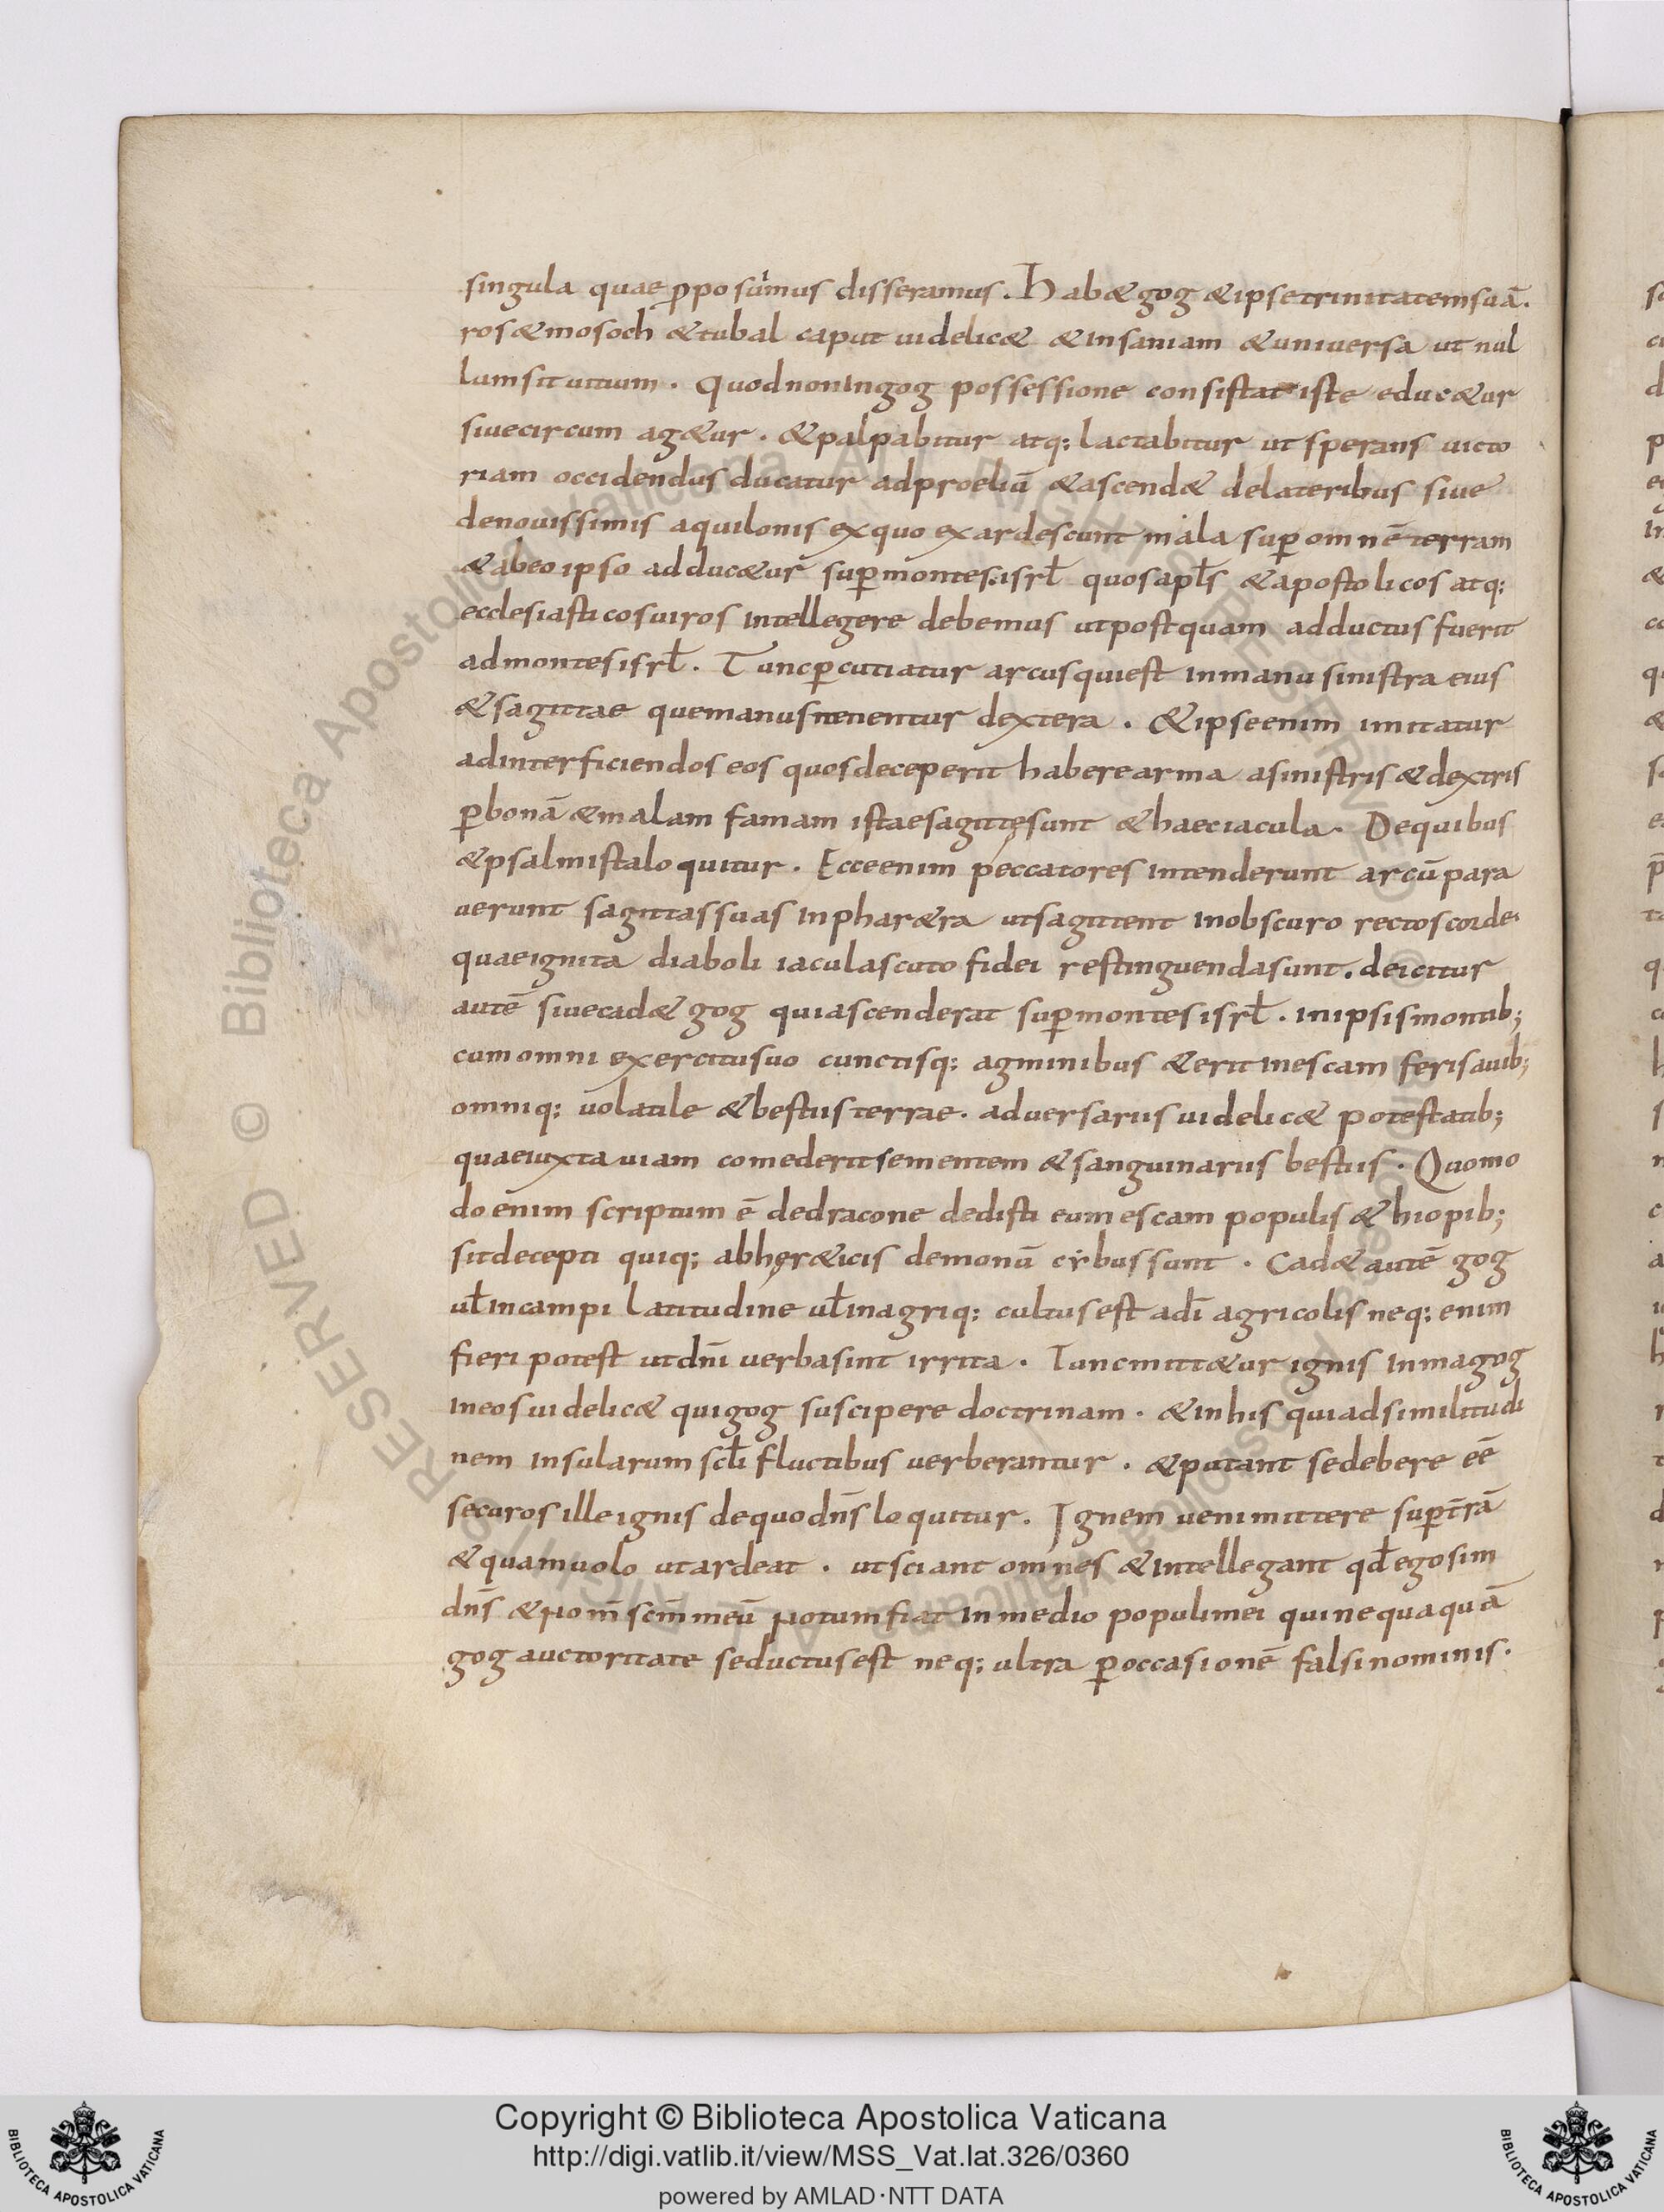 singula quae ꝓposuimus disseramus. Hab& gog & ipse trinitatem suā.
ros & mosoch & tubal caput uidelic& & insaniam & uniuersa ut nul
lum sit uitium. Quod non in gog possessione consistat iste educ&ur
siue circum ag&ur. & palpabitur atq; lactabitur ut sperans uicto
riam occidendus ducatur ad proeliū & ascend& de lateribus siue
de nouissimis aquilonis ex quo exardescunt mala suꝑ omnē terram
& ab eo ipso adduc&ur suꝑ montes isrł quos apłs & apostolicos atq;
ecclesiasticos uiros intellegere debemus ut postquam adductus fuerit
ad montes isrł. Tunc ꝑcutiatur arcus qui est in manu sinistra eius
& sagittae que manus tenentur dextera. & ipse enim imitatur
ad interficiendos eos quos deceperit habere arma a sinistris & dextris
ꝑ bonā & malam famam istae sagittę sunt & haec iacula. De quibus
& psalmista loquitur. Ecce enim peccatores intenderunt arcū para
uerunt sagittas suas in phar&ra ut sagittent in obscuro rectos corde.
quae ignita diaboli iacula scuto fidei restinguenda sunt. deicitur
autē siue cad& gog qui ascenderat suꝑ montes isrł. in ipsis montib;
cum omni exercitu suo cunctisq; agminibus & erit in escam feris auib;
omniq; uolatile & bestiis terrae. aduersariis uidelic& potestatib;
quae iuxta uiam comederit sementem & sanguinariis bestiis. Quomo
do enim scriptum ē de dracone dedisti eum escam populis &hiopib;
sit decepti quiq; ab her&icis demonū cybus sunt. Cad& autē gog
uł in campi latitudine uł in agri q; cultus est a dī agricolis neq; enim
fieri potest ut dn̄i uerba sint irrita. Tunc mitt&ur ignis in magog
in eos uidelic& qui gog suscipere doctrinam. & in his qui ad similitudi
nem insularum scłi fluctibus uerberantur. & putant se debere eē
securos ille ignis de quo dn̄s loquitur. Ignem ueni mittere suꝑ tr̄ā
& quam uolo ut ardeat. ut sciant omnes & intellegant qđ ego sim
dn̄s & nom̄ scm̄ meū notum fiat in medio populi mei qui nequaquā
gog auctoritate seductus est neq; ultra ꝑ occasionē falsi nominis.
Copyright © Biblioteca Apostolica Vaticana
http://digi.vatlib.it/view/MSS_Vat.lat.326/0360
powered by AMLAD·NTT DATA
BIBLIOTECA APOSTOLICA VATICANA
BIBLIOTECA APOSTOLICA VATICANA